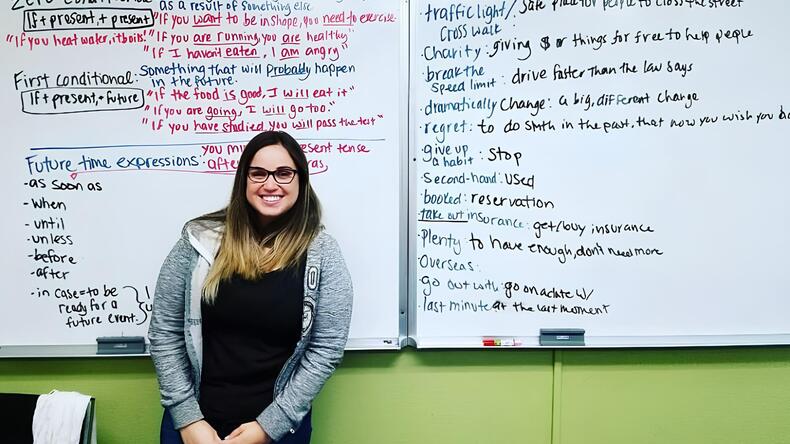 Zero Conditional:
as a result of something else.
If + present, + present
"If you want to be in shape, you need to exercise.
"If you heat water, it boils!"
"If you are running, you are healthy"
"If I haven't eaten, I am angry"
First Conditional: Something that will probably happen
in the future.
If + present, + future
"If the food is good, I will eat it"
"If you are going, I will go too."
"If you have studied, you will pass the test"
Future time expressions:
you mu present tense
after
- as soon as
- when
- until
- unless
- before
- after
- in case = to be
ready for a
future event.
· traffic light/ Safe place for people to cross the street
Cross walk:
· Charity: giving $ or things for free to help people
· break the
speed limit: drive faster than the law says
· dramatically change: a big, different change
· regret: to do smth in the past, that now you wish you
· give up
a habit: Stop
· Second-hand: used
· booked: reservation
· take out insurance: get/buy insurance
· Plenty to have enough, don't need more
· Overseas:
· go out with: go on a date w/
· last minute at the last moment